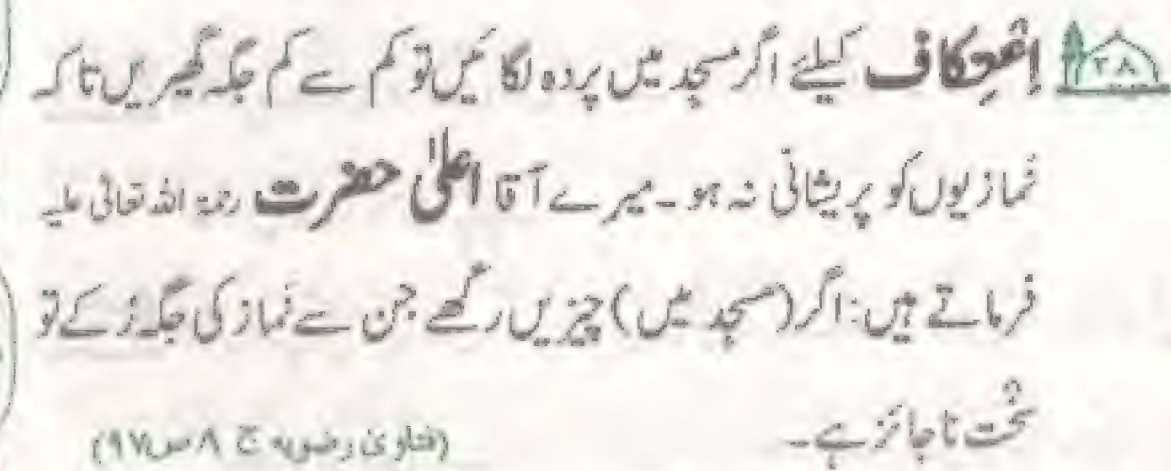 ۳۸ اعتکاف کیلئے اگر مسجد میں پردہ لگائیں تو کم سے کم جگہ گھیریں تاکہ
نمازیوں کو پریشانی نہ ہو۔ میرے آقا اعلیٰ حضرت رحمۃ اللہ تعالیٰ علیہ
فرماتے ہیں: اگر (مسجد میں) چیزیں رکھے جن سے نماز کی جگہ رُکے تو
سَخْت ناجائز ہے۔ (فتاویٰ رضویہ ج ۸ ص ۹۷)